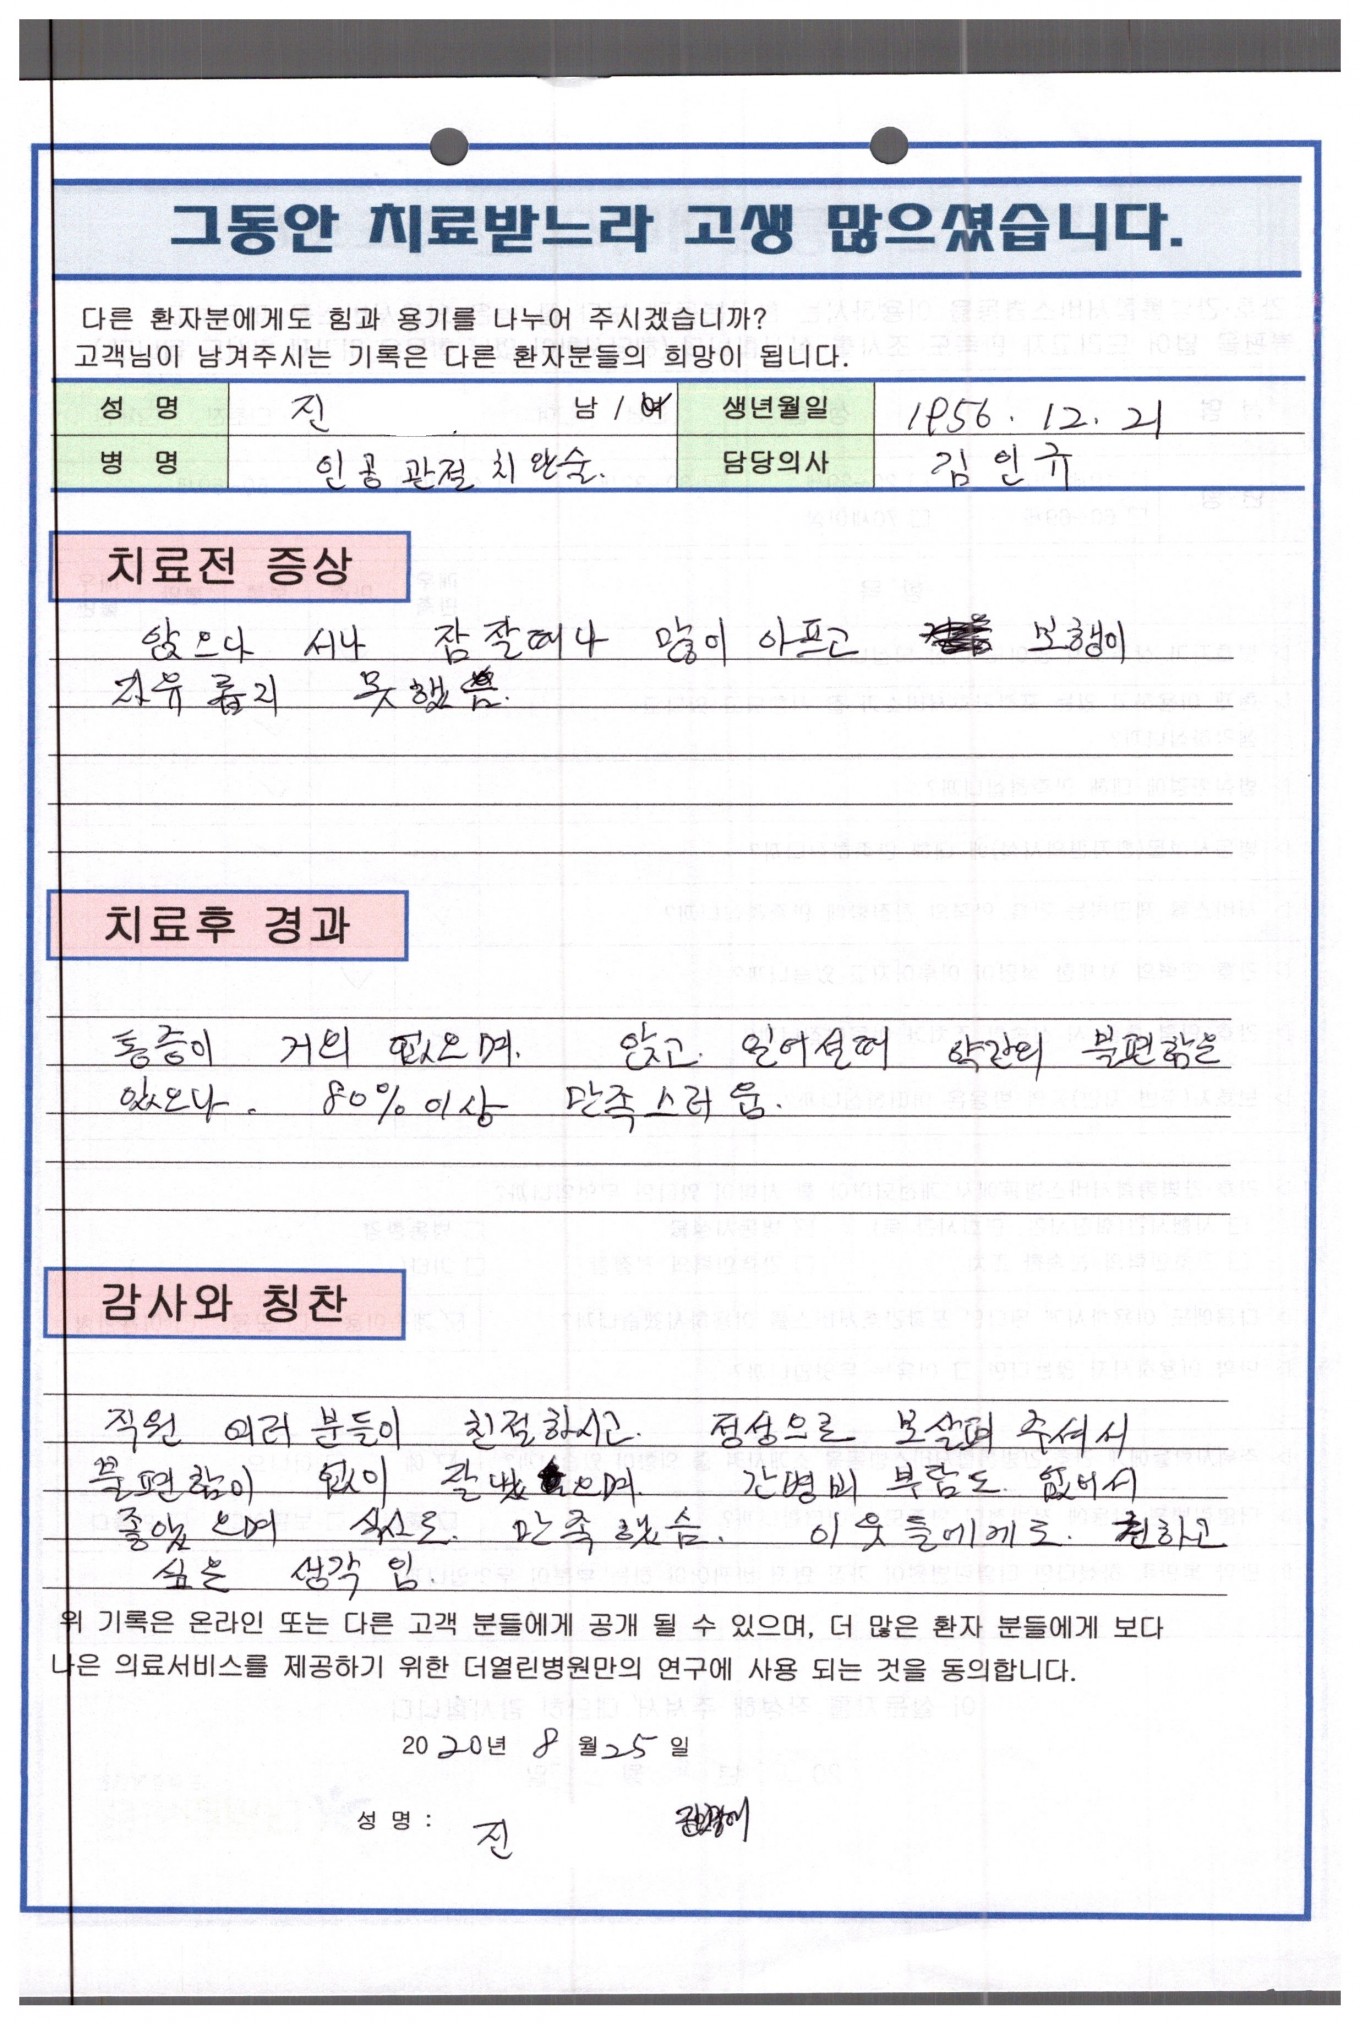 그동안 치료받느라 고생 많으셨습니다.
다른 환자분에게도 힘과 용기를 나누어 주시겠습니까?
고객님이 남겨주시는 기록은 다른 환자분들의 희망이 됩니다.
성 명 진 남 / 여 생년월일 1956. 12. 21
병 명 인공관절 치환술. 담당의사 김인규
치료전 증상
앉으나 서나 잠잘때나 많이 아프고 보행이
자유롭지 못했음.
치료후 경과
통증이 거의 없으며. 앉고. 일어설때 약간의 불편함은
있으나. 80%이상 만족스러움.
감사와 칭찬
직원 여러분들이 친절하시고. 정성으로 보살펴 주셔서
불편함이 없이 잘냈으며. 간병비 부담도 없어서
좋았으며 식사도 만족했음. 이웃들에게도. 권하고
싶은 생각임.
위 기록은 온라인 또는 다른 고객 분들에게 공개 될 수 있으며, 더 많은 환자 분들에게 보다
나은 의료서비스를 제공하기 위한 더열린병원만의 연구에 사용 되는 것을 동의합니다.
2020년 8월 25일
성 명 : 진